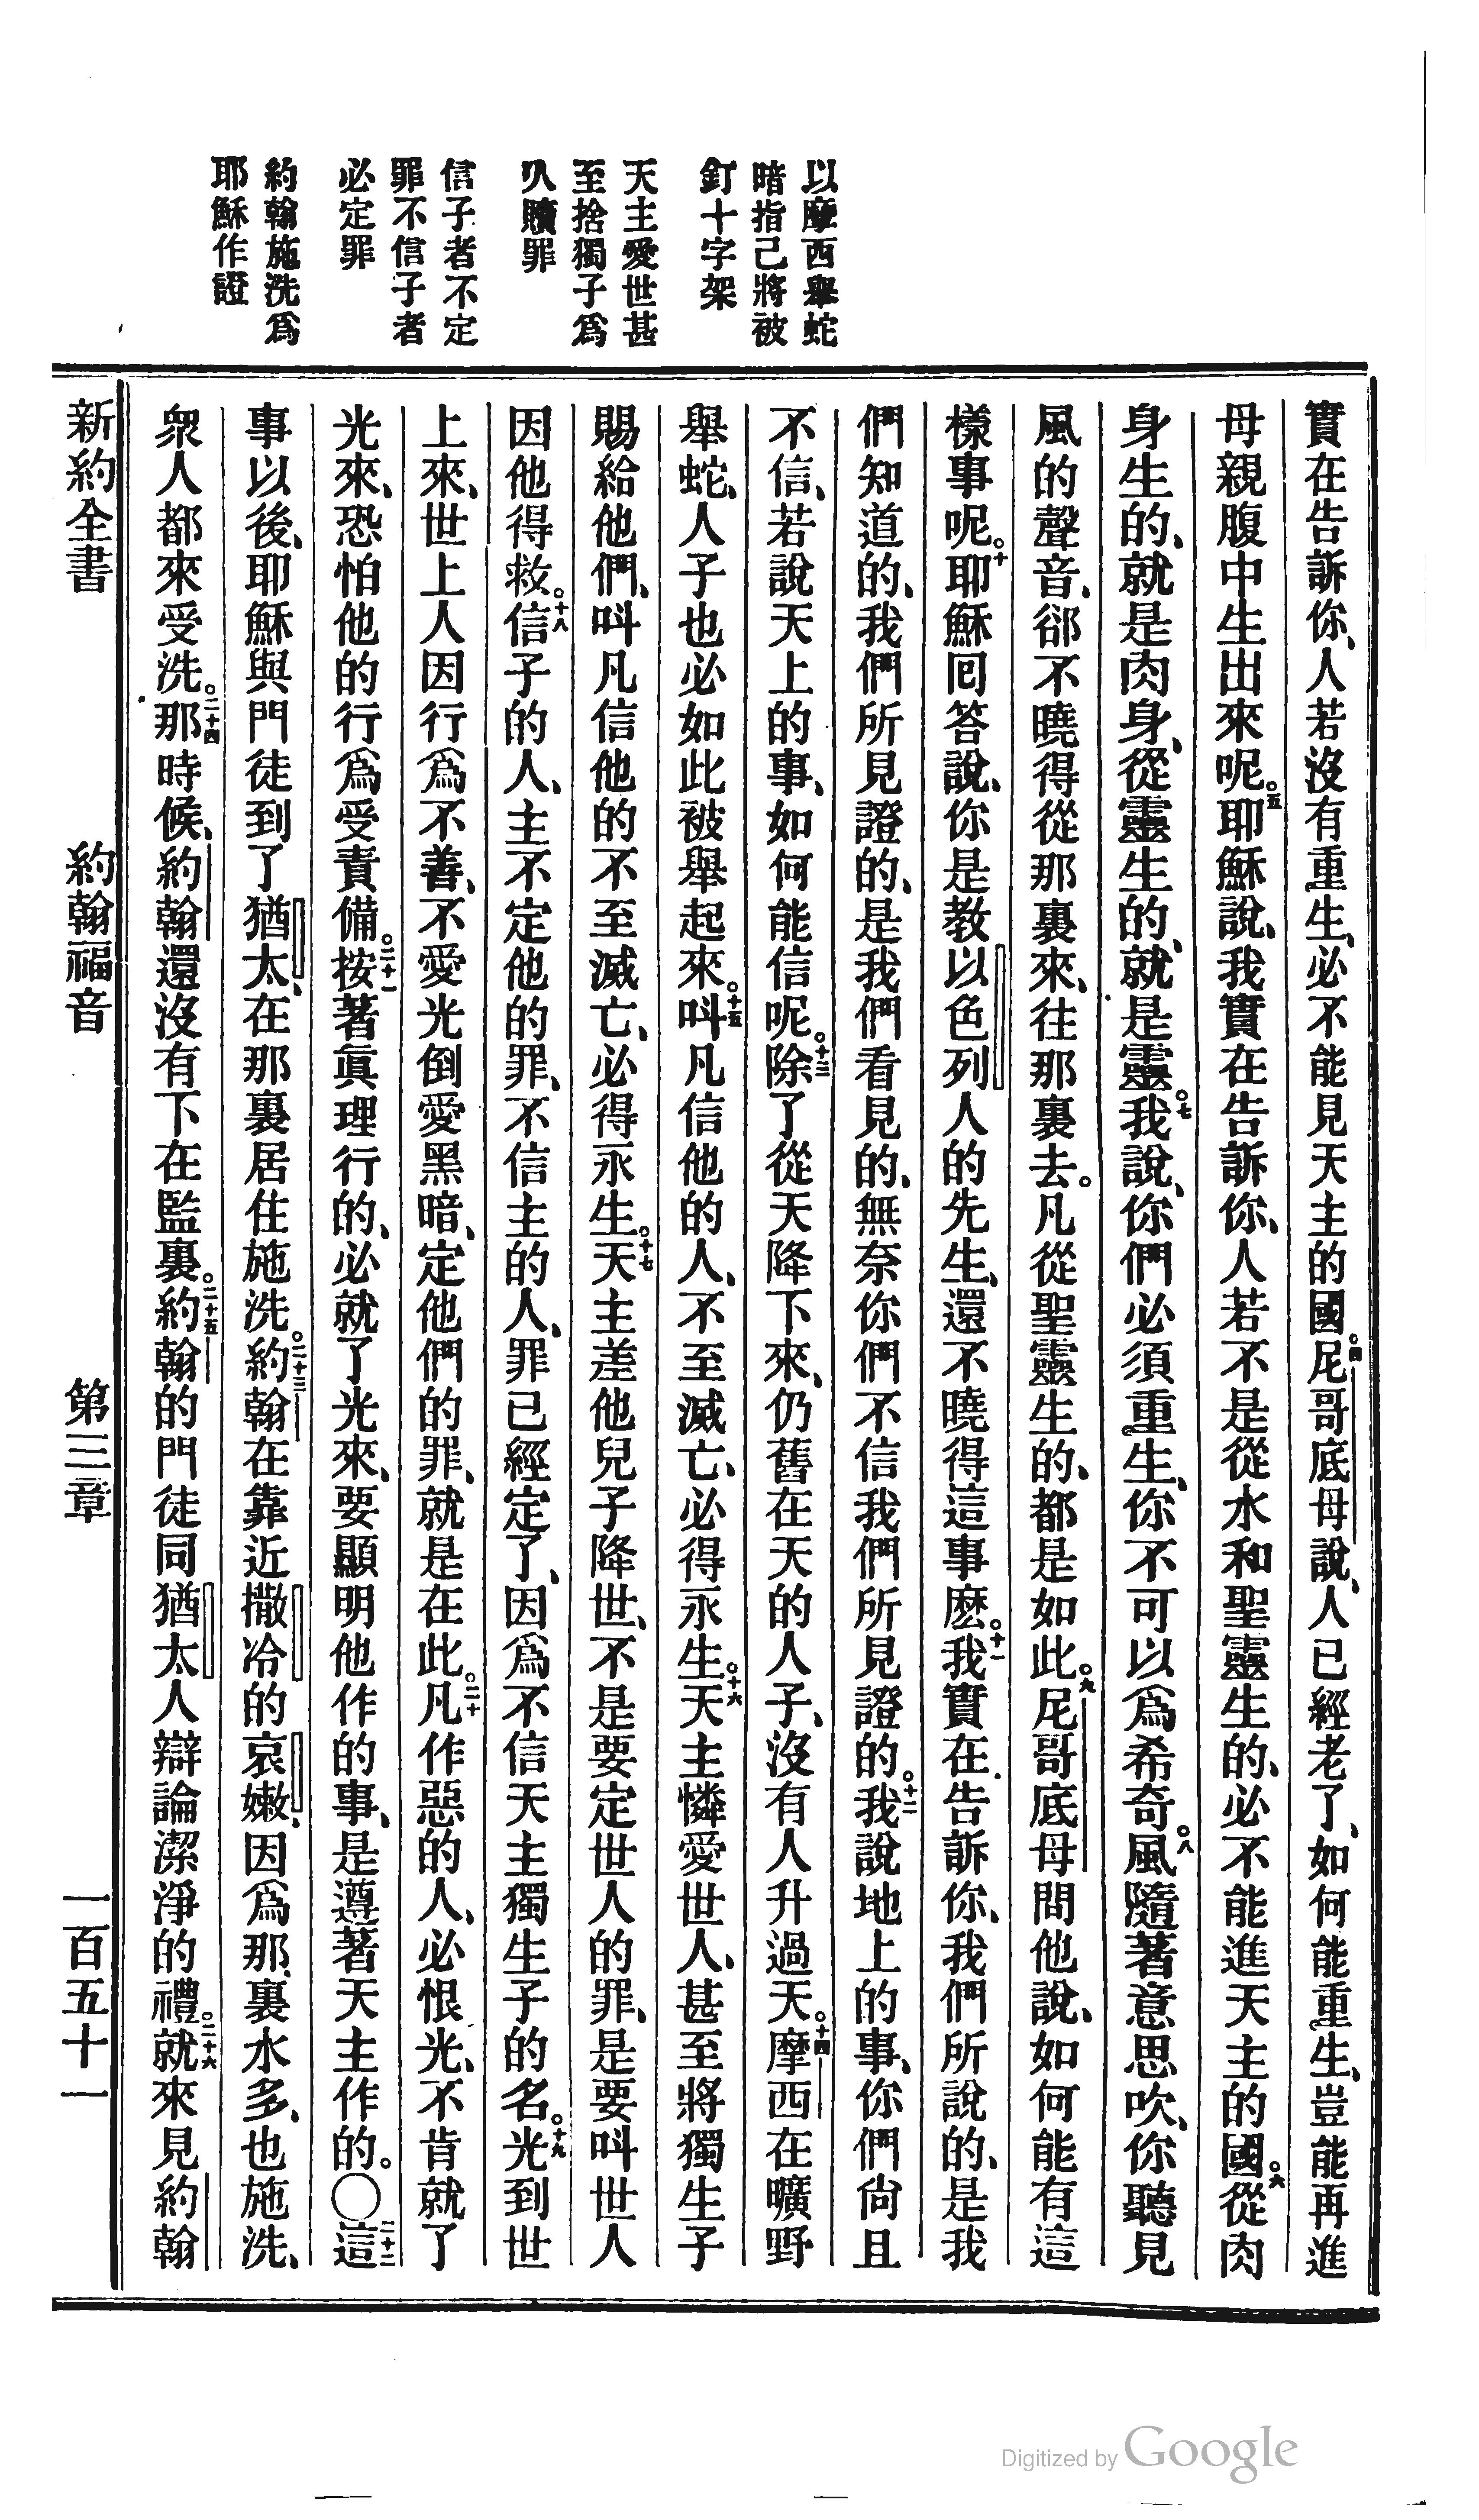 以摩西舉蛇
暗指己將被
釘十字架
天主愛世甚
至捨獨子爲
人贖罪
信子者不定
罪不信子者
必定罪
約翰施洗爲
耶穌作證
實在告訴你、人若沒有重生、必不能見天主的國。四尼哥底母說、人已經老了、如何能重生、豈能再進
母親腹中生出來呢。五耶穌說、我實在告訴你、人若不是從水和聖靈生的、必不能進天主的國。六從肉
身生的、就是肉身、從靈生的、就是靈。七我說、你們必須重生、你不可以爲希奇。八風隨著意思吹、你聽見
風的聲音、郤不曉得從那裏來、往那裏去。凡從聖靈生的、都是如此。九尼哥底母問他說、如何能有這
樣事呢。十耶穌回答說、你是教以色列人的先生、還不曉得這事麽。十一我實在告訴你、我們所說的、是我
們知道的、我們所見證的、是我們看見的、無奈你們不信我們所見證的。十二我說地上的事、你們尙且
不信、若說天上的事、如何能信呢。十三除了從天降下來、仍舊在天的人子、沒有人升過天。十四摩西在曠野
舉蛇、人子也必如此被舉起來。十五叫凡信他的人、不至滅亡、必得永生。十六天主憐愛世人、甚至將獨生子
賜給他們、叫凡信他的不至滅亡、必得永生。十七天主差他兒子降世、不是要定世人的罪、是要叫世人
因他得救。十八信子的人、主不定他的罪、不信主的人、罪已經定了、因爲不信天主獨生子的名。十九光到世
上來、世上人因行爲不善、不愛光倒愛黑暗、定他們的罪、就是在此。二十凡作惡的人、必恨光、不肯就了
光來、恐怕他的行爲受責備。二十一按著眞理行的、必就了光來、要顯明他作的事、是遵著天主作的。〇二十二這
事以後、耶穌與門徒到了猶太、在那裏居住施洗。二十三約翰在靠近撒冷的哀嫩、因爲那裏水多、也施洗、
衆人都來受洗。二十四那時候、約翰還沒有下在監裏。二十五約翰的門徒同猶太人辯論潔淨的禮。二十六就來見約翰
新約全書 約翰福音 第三章 一百五十一
Digitized by Google